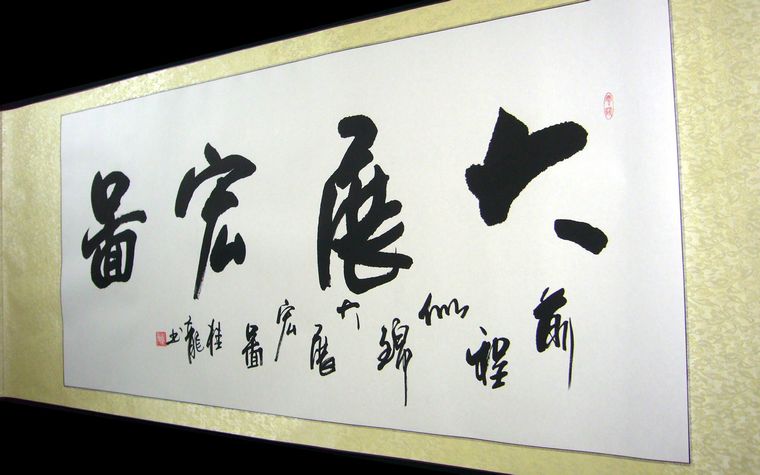 大展宏圖
前程似錦大展宏圖 桂龍书